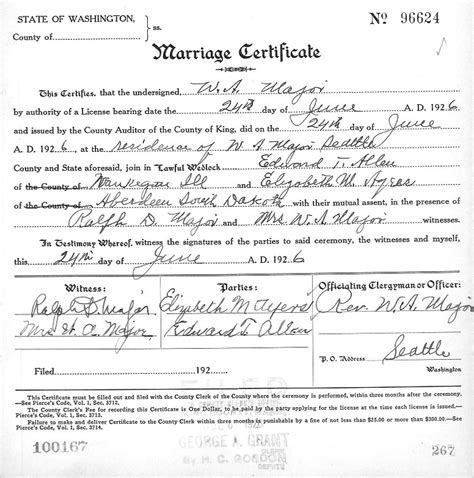 STATE OF WASHINGTON, } ss.
County of
No 96624
Marriage Certificate
This Certifies, that the undersigned, W. A. Major
by authority of a License bearing date the 24th day of June A. D. 1926
and issued by the County Auditor of the County of King, did on the 24th day of June
A. D. 192 6, at the residence of W A Major Seattle
County and State aforesaid, join in Lawful Wedlock Edward T. Allan
of the County of Waukegan Ill and Elizabeth M. Ayers
of the County of Aberdeen South Dakota with their mutual assent, in the presence of
Ralph D. Major and Mrs W. A Major witnesses.
In Testimony Whereof, witness the signatures of the parties to said ceremony, the witnesses and myself,
this 24th day of June A. D. 192 6
Witness: Parties: Officiating Clergyman or Officer:
Ralph D. Major Elizabeth M Ayers Rev. W. A. Major
Mrs W. A Major Edward T. Allan
P. O. Address Seattle
Filed 192 Washington
This Certificate must be filled out and filed with the County Clerk of the County where the ceremony is performed, within three months after the ceremony.
—See Pierce's Code, Vol. 1, Sec. 3712.
The County Clerk's Fee for recording this Certificate is One Dollar, to be paid by the party applying for the license at the time each license is issued.
—See Pierce's Code, Vol. 1, Sec. 3713.
Failure to make and deliver Certificate to County Clerk within three months is punishable by a fine of not less than $25.00 or more than $300.00.—See
Pierce's Code, Vol. 1, Sec. 3714.
FILED
100167
GEORGE A. GRANT
By H. C. GORDON
DEPUTY
267